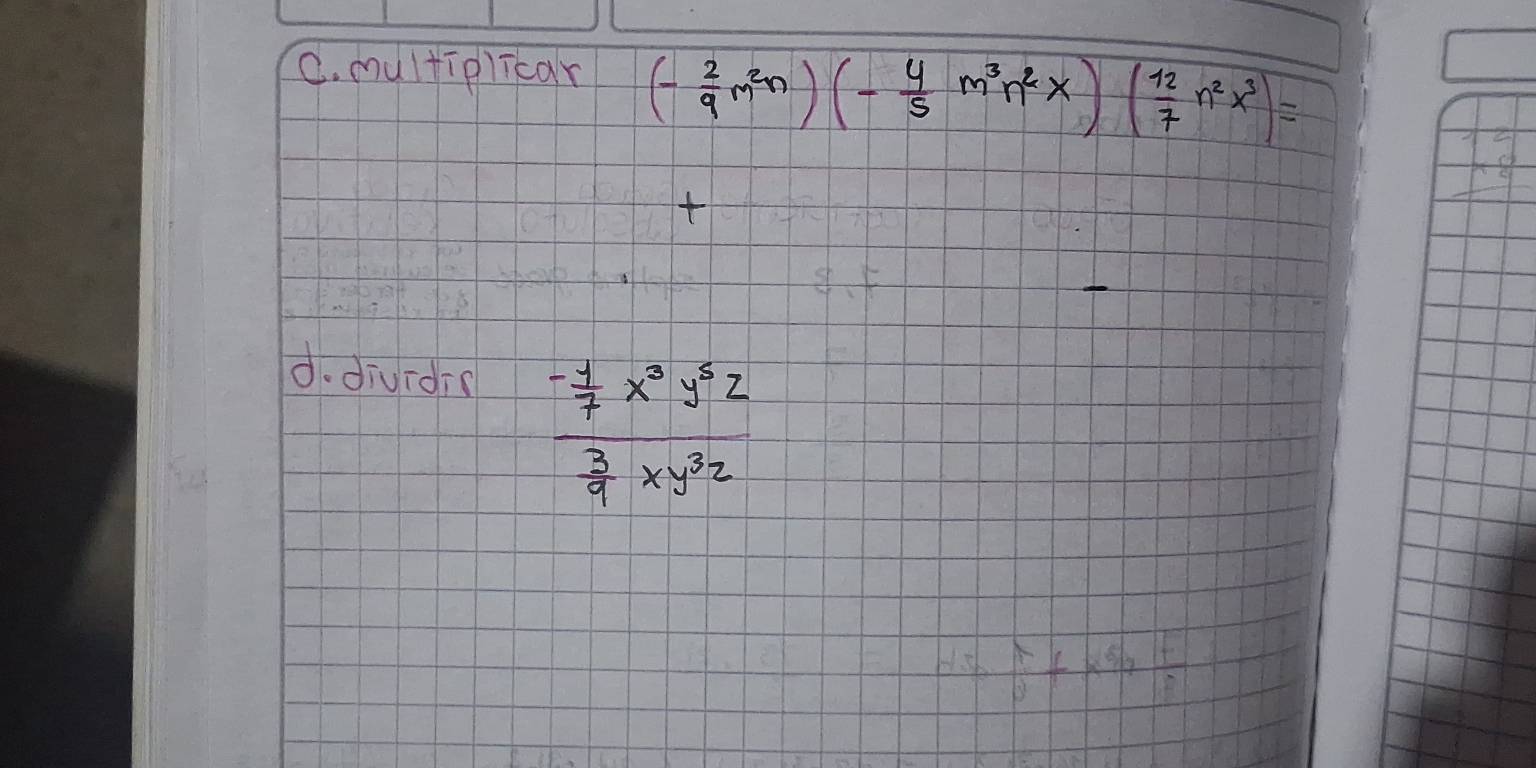 C. multiplicar (- 2/9 m²n) (- 4/5 m³n²x) (12/7 n²x³) =
+
-
d. dividir -1/7 x³ y⁵ z
3/9 xy³z